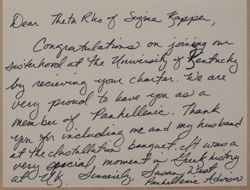 Dear Theta Rhos of Sigma Kappa,
Congratulations on joining our
sisterhood at the University of Kentucky
by recieving your charter. We are
very proud to have you as a
member of Panhellenic. Thank
you for including me and my husband
at the installation banquet. It was a
very special, moment in Greek history
at UK. Sincerely, Susan West
Panhellenic Advisor